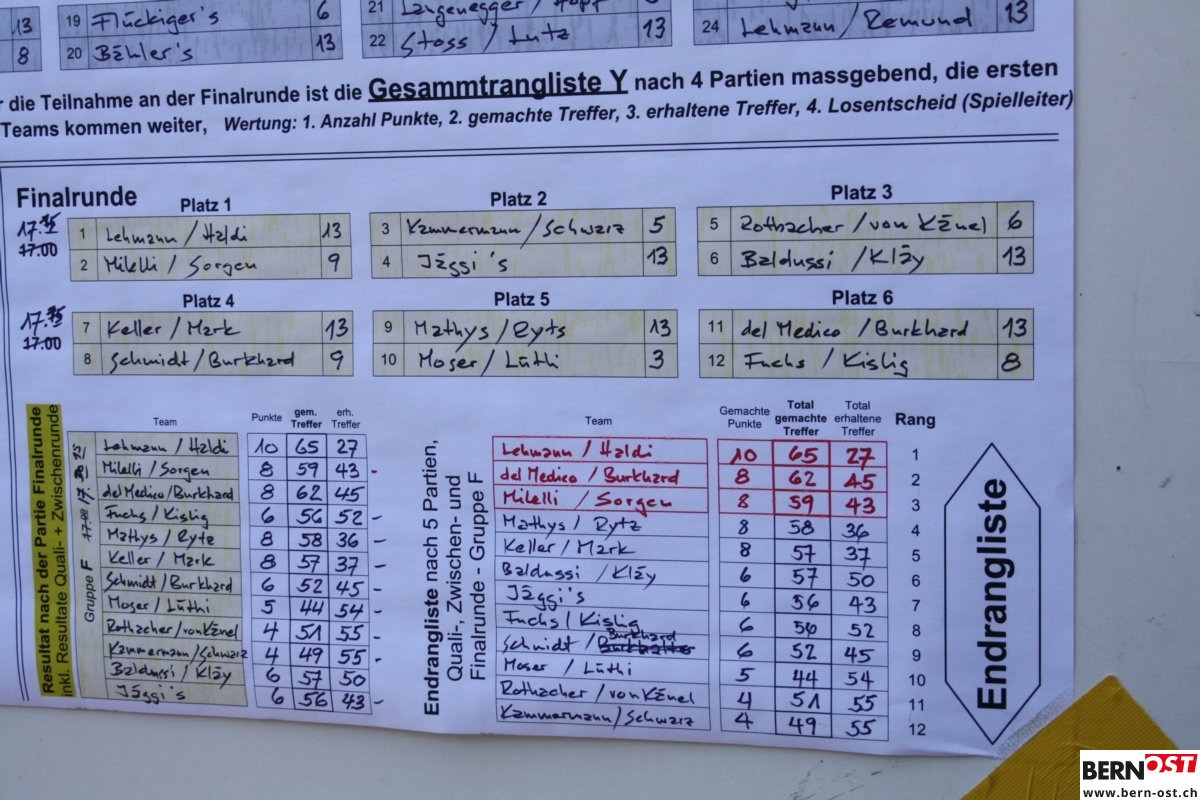 13
8
19 Flückiger's 6
20 Bähler's 13
21 Langenegger / Hopf
22 Stoss / Lutz 13
13
24 Lehmann / Remund
r die Teilnahme an der Finalrunde ist die Gesammtrangliste Y nach 4 Partien massgebend, die ersten
Teams kommen weiter, Wertung: 1. Anzahl Punkte, 2. gemachte Treffer, 3. erhaltene Treffer, 4. Losentscheid (Spielleiter)
Finalrunde
Platz 1
17.00
1 Lehmann / Haldi 13
2 Milelli / Sorgen 9
Platz 2
3 Kammermann / Schwarz 5
4 Jäggi's 13
Platz 3
5 Rothacher / von Känel 6
6 Baldussi / Kläy 13
Platz 4
17.00
7 Keller / Mark 13
8 Schmidt / Burkhard 9
Platz 5
9 Mathys / Ryts 13
10 Moser / Lüthi 3
Platz 6
11 del Medico / Burkhard 13
12 Fuchs / Kislig 8
Resultat nach der Partie Finalrunde
inkl. Resultate Quali- + Zwischenrunde
Gruppe F
Team Punkte gem. Treffer erh. Treffer
Lehmann / Haldi 10 65 27
Milelli / Sorgen 8 59 43
del Medico / Burkhard 8 62 45
Fuchs / Kislig 6 56 52
Mathys / Ryts 8 58 36
Keller / Mark 8 57 37
Schmidt / Burkhard 6 52 45
Moser / Lüthi 5 44 54
Rothacher / von Känel 4 51 55
Kammermann / Schwarz 4 49 55
Baldussi / Kläy 6 57 50
Jäggi's 6 56 43
Endrangliste nach 5 Partien,
Quali-, Zwischen- und
Finalrunde - Gruppe F
Team Gemachte Punkte Total gemachte Treffer Total erhaltene Treffer Rang
Lehmann / Haldi 10 65 27 1
del Medico / Burkhard 8 62 45 2
Milelli / Sorgen 8 59 43 3
Mathys / Rytz 8 58 36 4
Keller / Mark 8 57 37 5
Baldussi / Kläy 6 57 50 6
Jäggi's 6 56 43 7
Fuchs / Kislig 6 56 52 8
Schmidt / Burkhard 6 52 45 9
Moser / Lüthi 5 44 54 10
Rothacher / von Känel 4 51 55 11
Kammermann / Schwarz 4 49 55 12
Endrangliste
BERNOST
www.bern-ost.ch